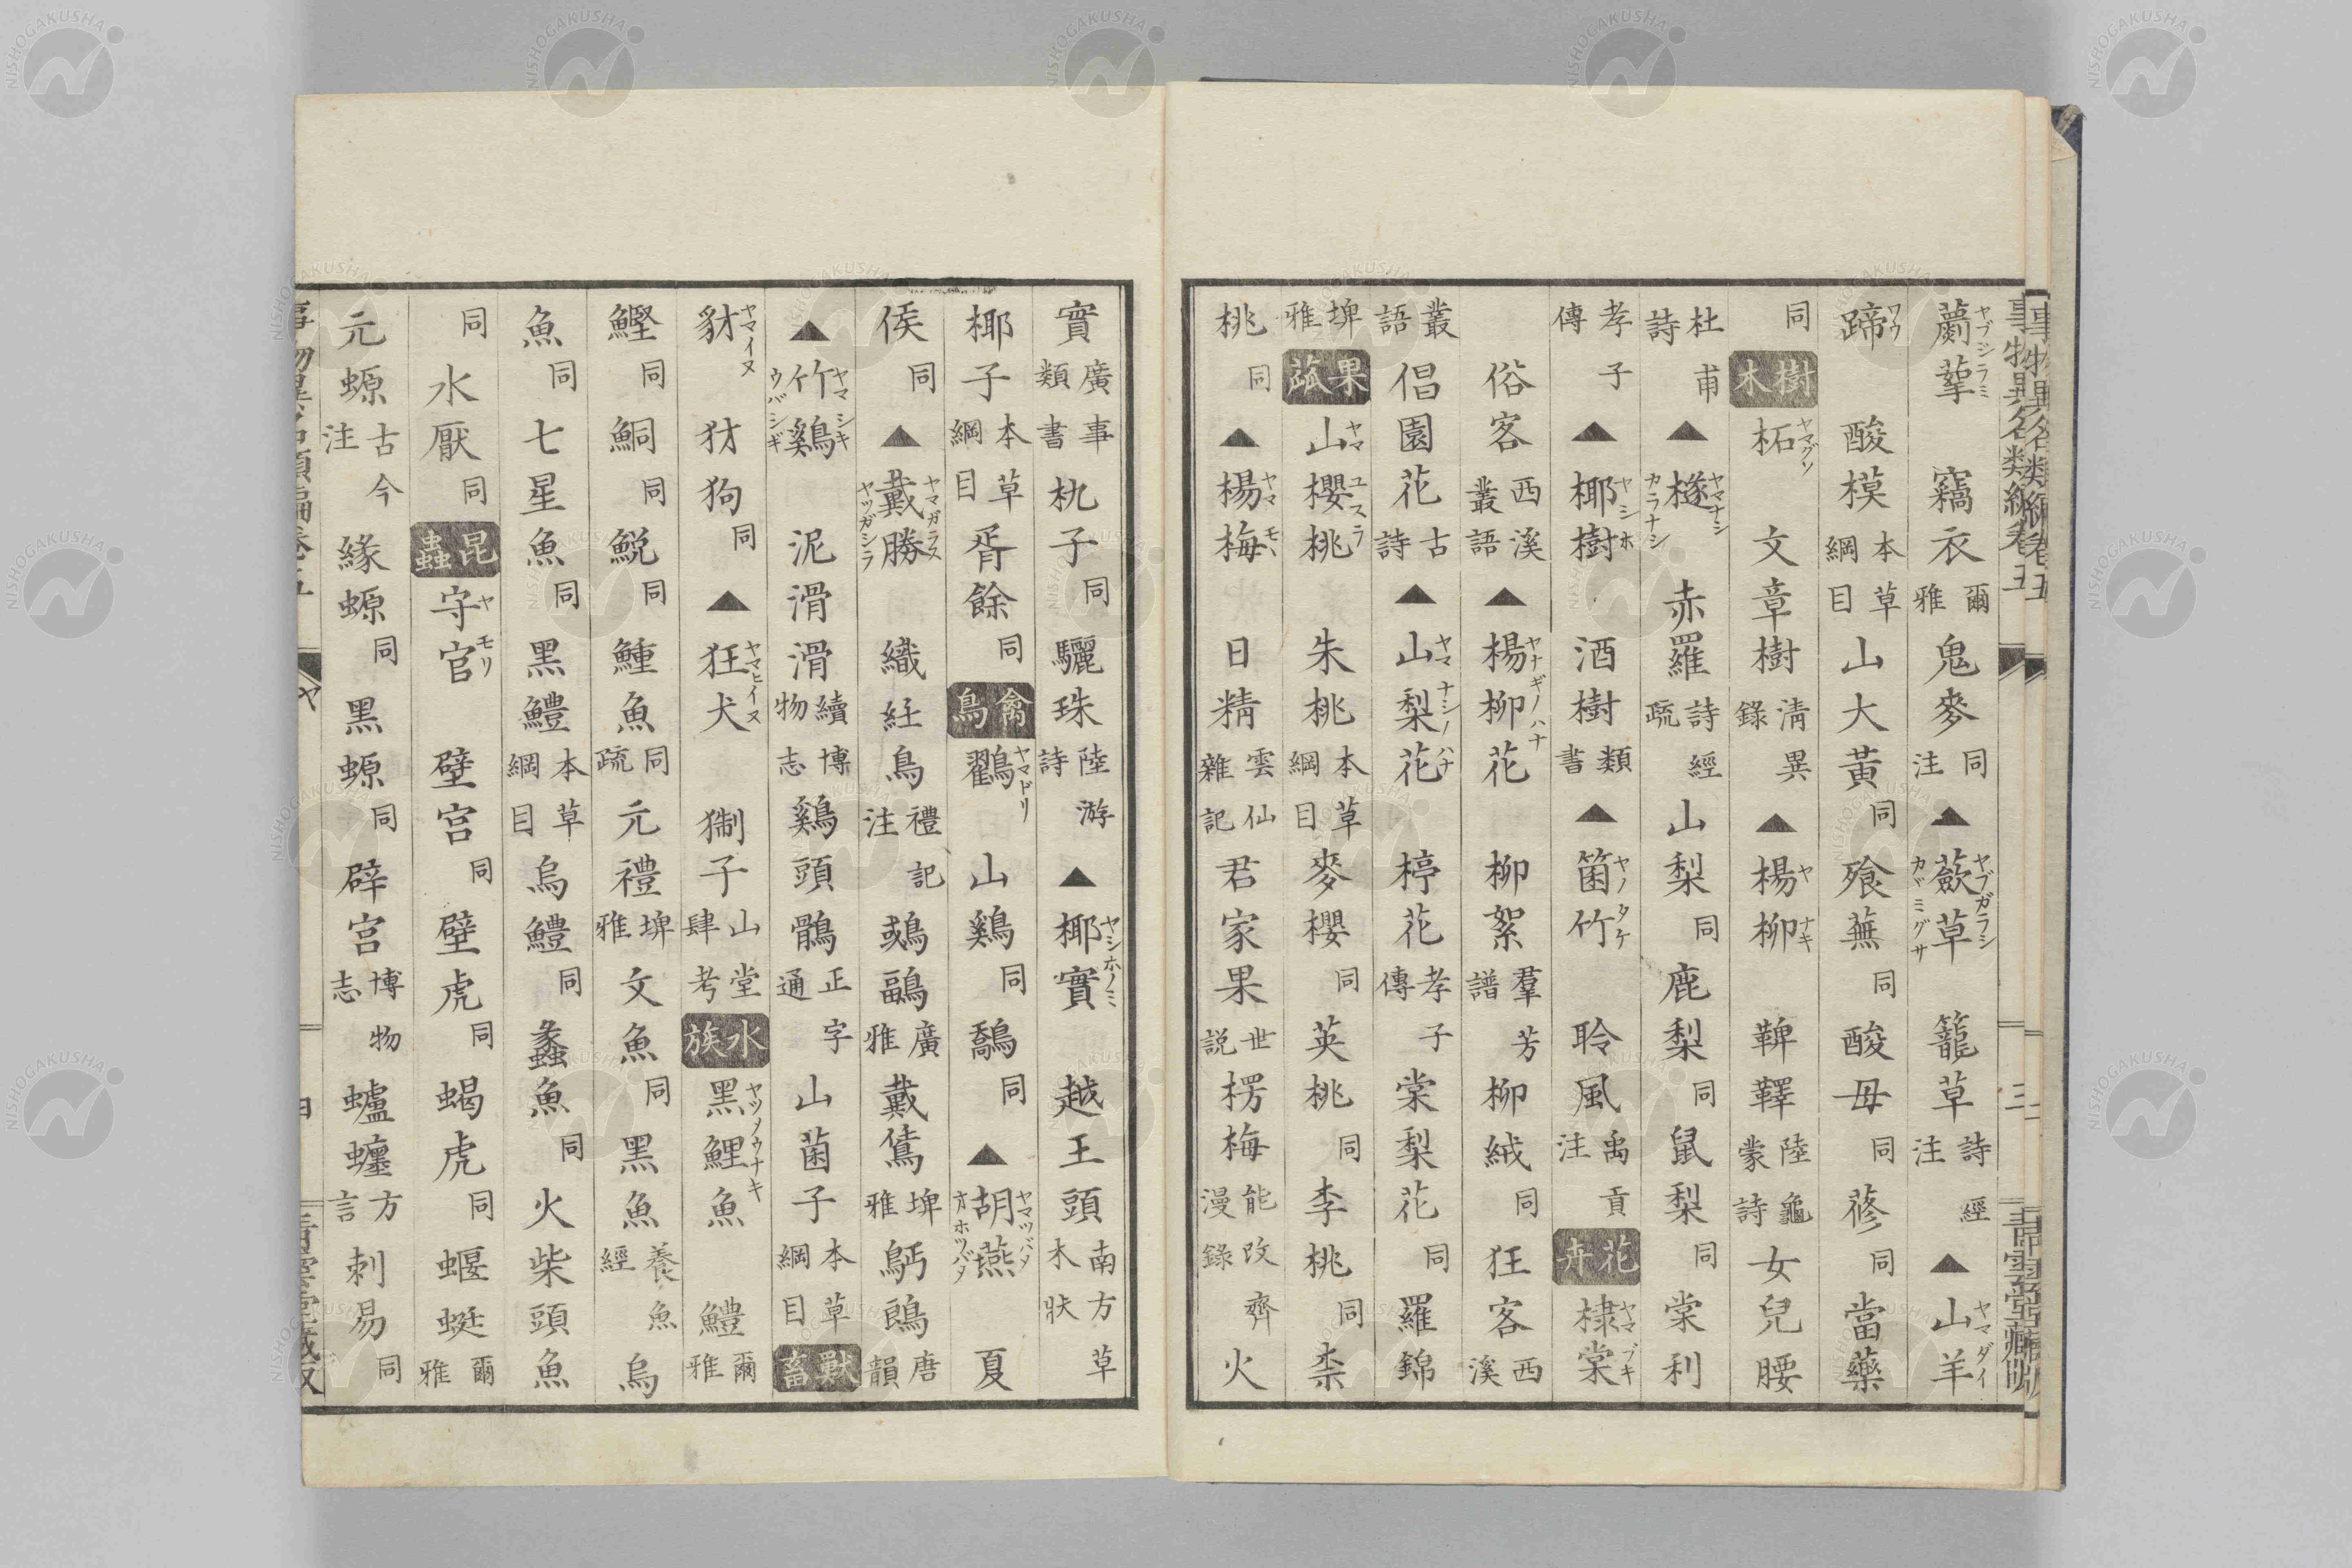 蘮ヤブジラミ 挐 竊衣 爾雅 鬼麥 同注 ▲ 蘞草ヤブガラシ カヾミグサ 蘢草 詩經注 ▲ 山羊ヤマダイ
蹄ワウ 酸模 本草綱目 山大黃 同 飱蕪 同 酸母 同 蓚 同 當藥
同 樹木 柘ヤマグワ 文章樹 清異錄 ▲ 楊柳ヤナキ 鞞鞸 陸龜蒙詩 女兒腰
杜甫詩 ▲ 檖ヤマナシ カラナシ 赤羅 詩經疏 山梨 同 鹿梨 同 鼠梨 同 棠利
孝子傳 ▲ 椰樹ヤシホ 酒樹 類書 ▲ 箘竹ヤノタケ 聆風 禹貢注 花卉 棣棠ヤマブキ
俗客 西溪叢語 ▲ 楊柳花ヤナギノハナ 柳絮 羣芳譜 柳絨 同 狂客 西溪
叢語 倡園花 古詩 ▲ 山梨花ヤマナシノハナ 楟花 孝子傳 棠梨花 同 羅錦
埤雅 果蓏 山櫻桃ヤマユスラ 朱桃 本草綱目 麥櫻 同 英桃 同 李桃 同 柰
桃 同 ▲ 楊梅ヤマモヽ 日精 雲仙雜記 君家果 世説 楞梅 能改齊漫錄 火
實 廣事類書 朹子 同 驪珠 陸游詩 ▲ 椰實ヤシホノミ 越王頭 南方草木狀
椰子 本草綱目 胥餘 同 禽鳥 鸐ヤマドリ 山鷄 同 鷮 同 ▲ 胡燕ヤマツバメ オホツバメ 夏
侯 同 ▲ 戴勝ヤマガラス ヤツガシラ 織紝鳥 禮記注 鵡鶝 廣雅 戴鵀 埤雅 鴔鵖 唐韻
▲ 竹鷄ヤマシギ ウバシギ 泥滑滑 續博物志 鷄頭鶻 正字通 山菌子 本草綱目 獸畜
豺ヤマイヌ 犲狗 同 ▲ 狂犬ヤマヒイヌ 猘子 山堂肆考 水族 黑鯉魚ヤツメウナキ 鱧 爾雅
鰹 同 鮦 同 鮵 同 鯶魚 同疏 元禮 埤雅 文魚 同 黑魚 養魚經 烏
魚 同 七星魚 同 黑鱧 本草綱目 烏鱧 同 蠡魚 同 火柴頭魚
同 水厭 同 昆蟲 守宮ヤモリ 壁宮 同 壁虎 同 蝎虎 同 蝘蜓 爾雅
元螈 古今注 緣螈 同 黑螈 同 辟宮 博物志 蠦蠪 方言 刺易 同